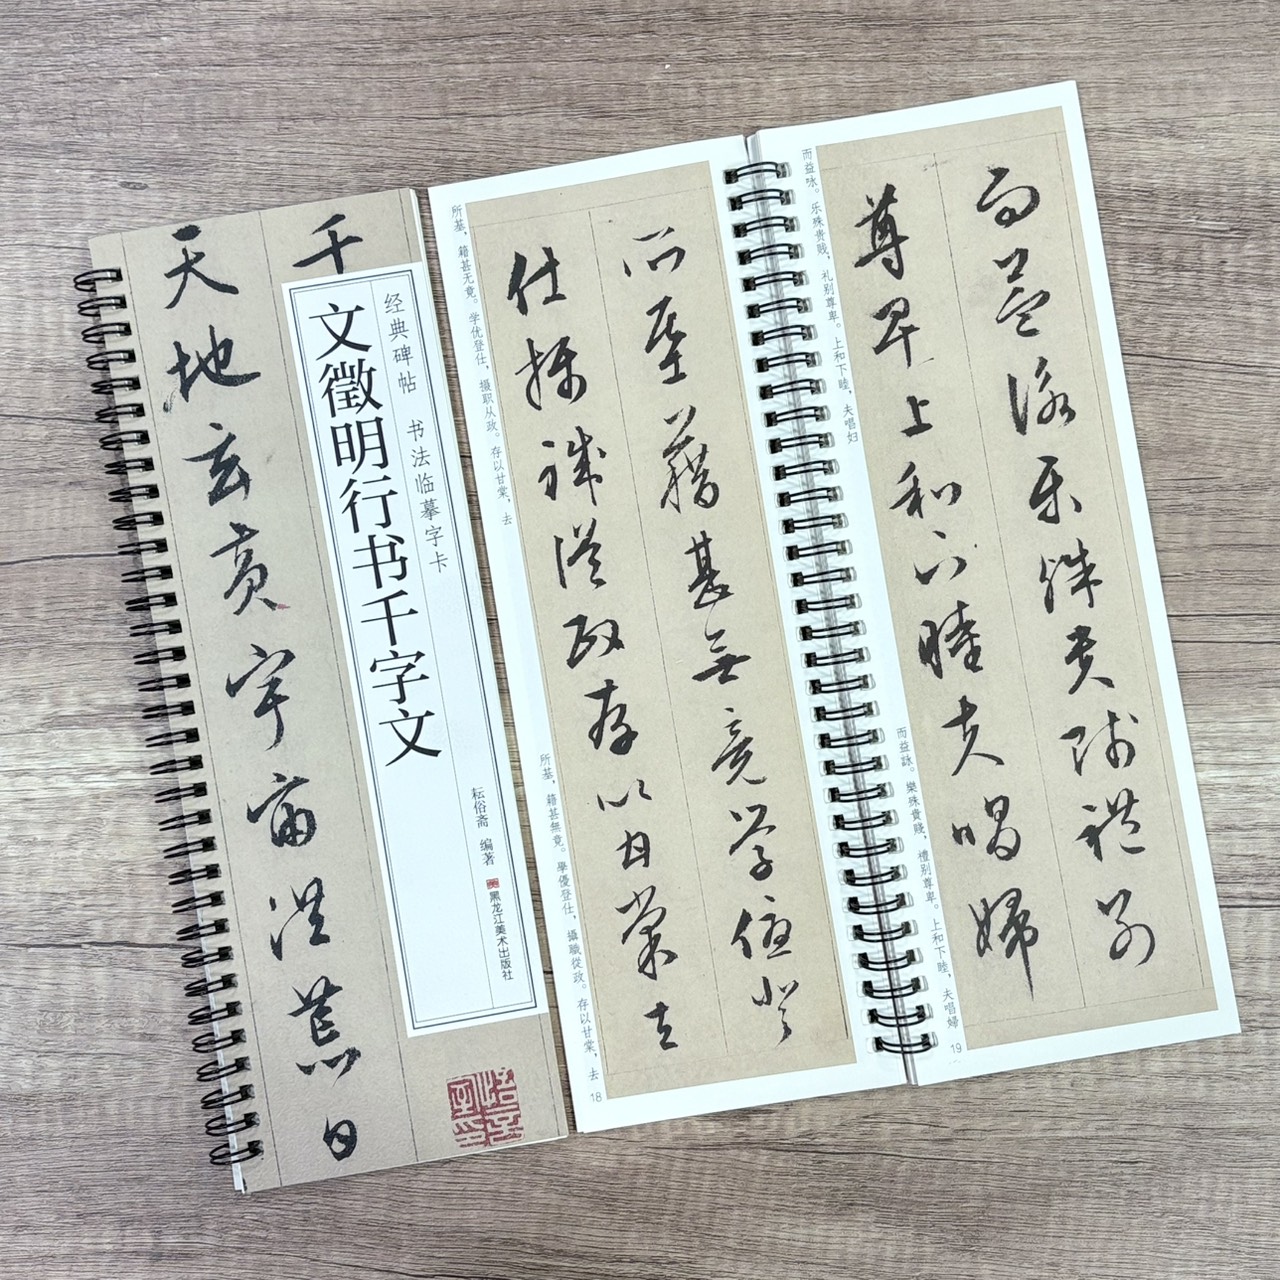 千
天地玄黄宇宙洪荒日
经典碑帖 书法临摹字卡
文徵明行书千字文
耘俗斋 编著
黑龙江美术出版社
所基籍甚無竟学优登
仕摄职從政存以甘棠去
所基，籍甚无竟。学优登仕，摄职从政。存以甘棠，去
所基，籍甚無竟。學優登仕，攝職從政。存以甘棠，去
18
而益詠乐殊贵贱礼别
尊卑上和下睦夫唱婦
而益咏。乐殊贵贱，礼别尊卑。上和下睦，夫唱妇
而益詠。樂殊貴賤，禮别尊卑。上和下睦，夫唱婦
19